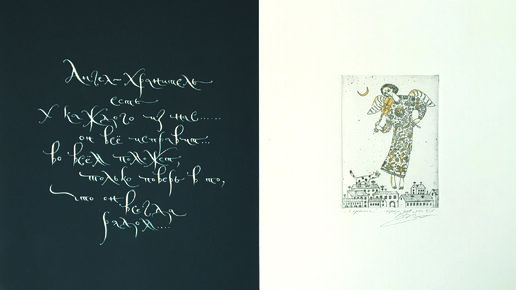 Ангел-Хранитель
есть
у каждого из нас......
он всё исправит...
во всём поможет,
только поверь в то,
что он
всегда
рядом....